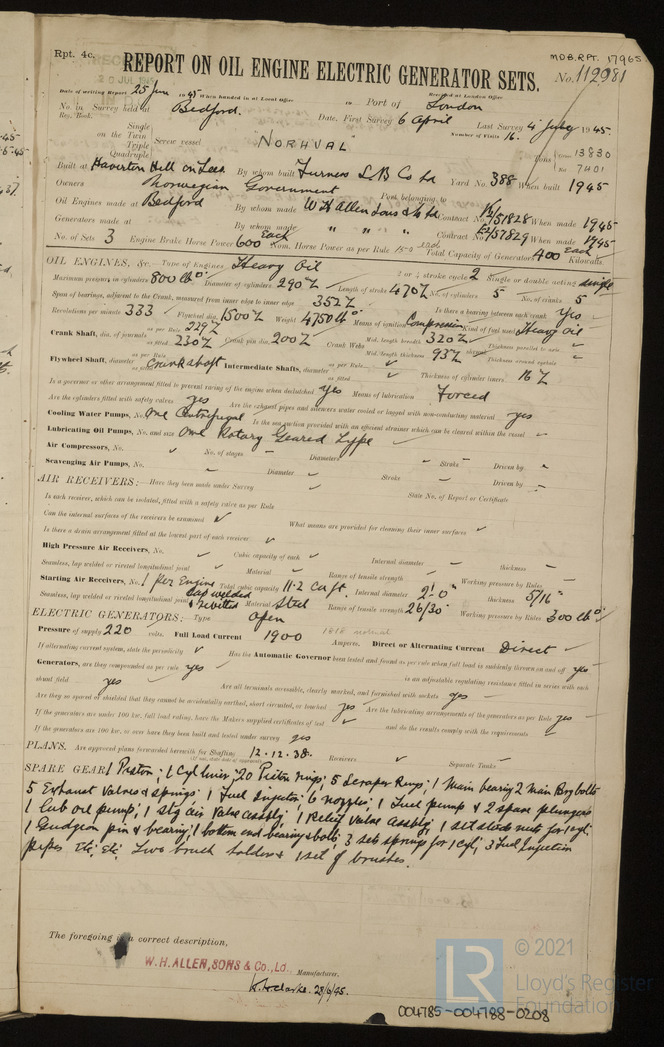 Rpt. 4c.
MDB.RPT. 17965
REPORT ON OIL ENGINE ELECTRIC GENERATOR SETS.
No. 112981
20 JUL 1945
Date of writing Report 25 June 1945 When handed in at Local Office 19 Port of London
Received at London Office
No. in Reg. Book. Survey held at Bedford. Date, First Survey 6 April Last Survey 4 July 1945.
Number of Visits 16.
Single on the Twin Triple Quadruple Screw vessel "NORHVAL" Tons Gross 13830 Net 7401
Built at Haverton Hill on Tees By whom built Furness S.B Co Ld Yard No. 388 When built 1945
Owners Norwegian Government Port belonging to
Oil Engines made at Bedford By whom made W H Allen Sons & Co Ld Contract No. K2/51828 When made 1945
Generators made at " By whom made " " " Contract No. K2/57829 When made 1945
No. of Sets 3 Engine Brake Horse Power 600 Each Nom. Horse Power as per Rule 150 each Total Capacity of Generators 400 Each Kilowatts.
OIL ENGINES, &c.— Type of Engines Heavy Oil 2 or 4 stroke cycle 2 Single or double acting single
Maximum pressure in cylinders 800 lb □" Diameter of cylinders 290 Length of stroke 470 No. of cylinders 5 No. of cranks 5
Span of bearings, adjacent to the Crank, measured from inner edge to inner edge 352 Is there a bearing between each crank yes
Revolutions per minute 333 Flywheel dia. 1500 Weight 4750 lb Means of ignition Compression Kind of fuel used Heavy oil
Crank Shaft, dia. of journals as per Rule 229 as fitted 230 Crank pin dia. 200 Crank Webs Mid. length breadth 320 Mid. length thickness 93 Thickness parallel to axis Thickness around eyehole
Flywheel Shaft, diameter as per Rule as fitted Crankshaft Intermediate Shafts, diameter as per Rule as fitted Thickness of cylinder liners 16
Is a governor or other arrangement fitted to prevent racing of the engine when declutched yes Means of lubrication Forced
Are the cylinders fitted with safety valves yes Are the exhaust pipes and silencers water cooled or lagged with non-conducting material yes
Cooling Water Pumps, No. One Centrifugal Is the sea suction provided with an efficient strainer which can be cleared within the vessel -
Lubricating Oil Pumps, No. and size One Rotary Geared Type
Air Compressors, No. ✓ No. of stages - Diameters - Stroke - Driven by -
Scavenging Air Pumps, No. ✓ Diameter ✓ Stroke - Driven by -
AIR RECEIVERS:— Have they been made under Survey ✓ State No. of Report or Certificate
Is each receiver, which can be isolated, fitted with a safety valve as per Rule
Can the internal surfaces of the receivers be examined ✓ What means are provided for cleaning their inner surfaces ✓
Is there a drain arrangement fitted at the lowest part of each receiver ✓
High Pressure Air Receivers, No. ✓ Cubic capacity of each ✓ Internal diameter - thickness -
Seamless, lap welded or riveted longitudinal joint ✓ Material ✓ Range of tensile strength ✓ Working pressure by Rules
Starting Air Receivers, No. 1 per Engine Total cubic capacity 11.2 cu ft. Internal diameter 2'-0" thickness 5/16"
Seamless, lap welded or riveted longitudinal joint Lap welded & rivetted Material Steel Range of tensile strength 26/30 Working pressure by Rules 300 lb □"
ELECTRIC GENERATORS:— Type Open
Pressure of supply 220 volts. Full Load Current 1900 1818 normal Amperes. Direct or Alternating Current Direct
If alternating current system, state the periodicity ✓ Has the Automatic Governor been tested and found as per rule when full load is suddenly thrown on and off yes
Generators, are they compounded as per rule yes is an adjustable regulating resistance fitted in series with each
shunt field yes Are all terminals accessible, clearly marked, and furnished with sockets yes
Are they so spaced or shielded that they cannot be accidentally earthed, short circuited, or touched yes Are the lubricating arrangements of the generators as per Rule yes
If the generators are under 100 kw. full load rating, have the Makers supplied certificates of test ✓ and do the results comply with the requirements ✓
If the generators are 100 kw. or over have they been built and tested under survey yes
PLANS. Are approved plans forwarded herewith for Shafting 12.12.38. Receivers ✓ Separate Tanks -
SPARE GEAR 1 Piston; 1 Cyl liner; 20 Piston rings; 5 Scraper Rings; 1 Main bearing 2 main Brg bolts
5 Exhaust Valves & springs 1 Fuel Injector; 6 nozzles; 1 Fuel pump & 2 spare plungers
1 Lub oil pump; 1 Stg air Valve assbly; 1 Relief Valve Assbly; 1 set studs nuts for 1 cyl;
1 Gudgeon pin & bearing; 1 bottom end bearing & bolts; 3 sets springs for 1 cyl; 3 Fuel Injection
pipes Etc; Etc; Two brush holders & 1 set of brushes.
The foregoing is a correct description,
W. H. ALLEN, SONS & Co., Ld., Manufacturer.
28/6/45.
LR
© 2021
Lloyd's Register
Foundation
004785-004788-0208